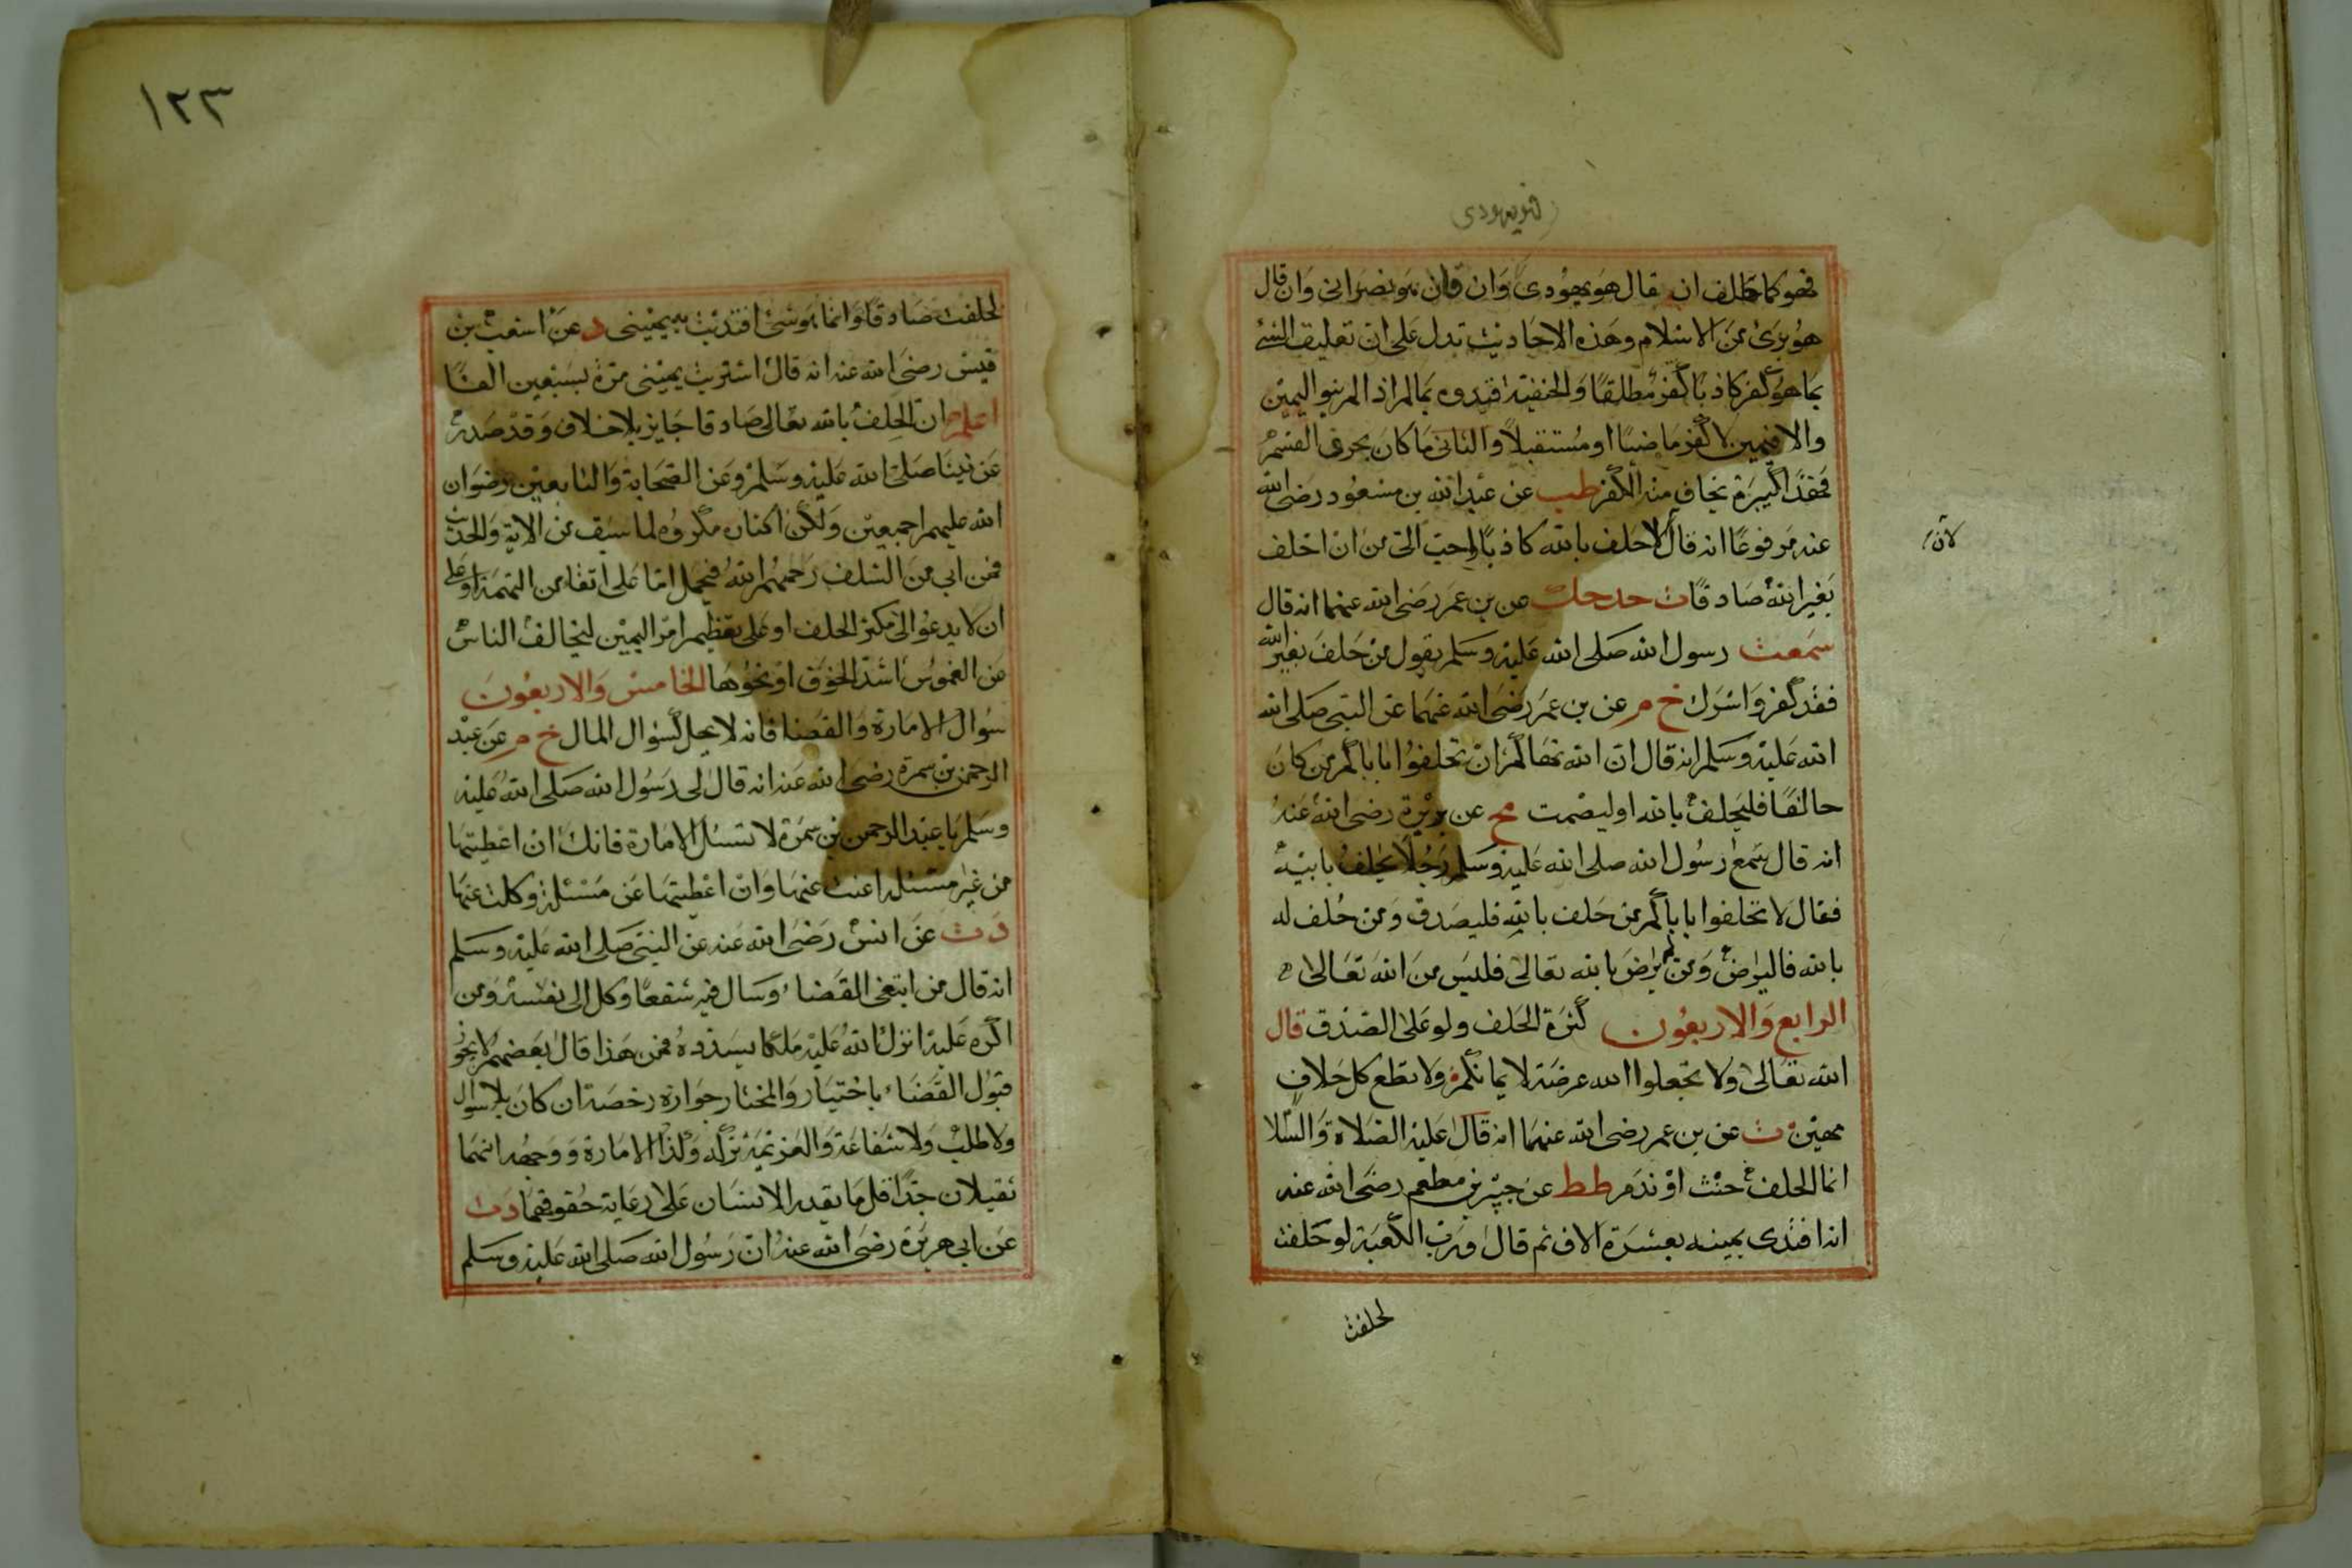 فهو يهودى
فهو كما حلف ان قال هو يهودى وان قال هو نصرانى وان قال
هو برئ من الاسلام وهذه الاحاديث تدل على ان تعليق الشئ
بما هو كفر كاذبا كفر مطلقا والحنفية قيدوه بما اذا لم ينو اليمين
والا فيمين لا كفر ماضيا او مستقبلا والثانى ما كان بحرف القسم
فهذا كبيرة يخاف منه الكفر طب عن عبد الله بن مسعود رضى الله
عنه مرفوعا انه قال لاحلف بالله كاذبا احب الى من ان احلف
لان
بغير الله صادقا ت حد حك عن بن عمر رضى الله عنهما انه قال
سمعت رسول الله صلى الله عليه وسلم يقول من حلف بغير الله
فقد كفر واشرك خ م عن بن عمر رضى الله عنهما عن النبى صلى الله
الله عليه وسلم انه قال ان الله نهاكم ان تحلفوا باباكم من كان
حالفا فليحلف بالله او ليصمت مج عن بريدة رضى الله عنه
انه قال سمع رسول الله صلى الله عليه وسلم رجلا يحلف بابيه
فقال لا تحلفوا باباكم من حلف بالله فليصدق ومن حلف له
بالله فاليرض ومن لم يرض بالله تعالى فليس من الله تعالى
الرابع والاربعون كثرة الحلف ولو على الصدق قال
الله تعالى ولا تجعلوا الله عرضة لايمانكم ولا تطع كل حلاف
مهين ت عن بن عمر رضى الله عنهما انه قال عليه الصلاة والسلا
انما الحلف حنث او ندم طط عن جبير بن مطعم رضى الله عنه
انه افتدى يمينه بعشرة الاف ثم قال ورب الكعبة لو حلفت
لحلفت
١٢٣
لحلفت صادقا وانما هو شئ افتديت به يمينى د عن اشعث بن
قيس رضى الله عنه انه قال اشتريت يمينى مرة بسبعين الفا
اعلم ان الحلف بالله تعالى صادقا جايز بلا خلاف وقد صدر
عن نبينا صلى الله عليه وسلم وعن الصحابة والتابعين رضوان
الله عليهم اجمعين ولكن اكثاره مكروه لما سبق من الاية والحديث
فمن ابى من السلف رحمهم الله فيحمل اما على اتقاء من التهمة او على
ان لا يدعوا الى مكثر الحلف او على تعظيم امر اليمين ليخالف الناس
من الغموس اشد الخوف او نحوها الخامس والاربعون
سوال الامارة والقضا فانه لا يحل كسوال المال خ م عن عبد
الرحمن بن سمرة رضى الله عنه انه قال لى رسول الله صلى الله عليه
وسلم يا عبد الرحمن بن سمرة لا تسئل الامارة فانك ان اعطيتها
من غير مسئلة اعنت عنها وان اعطيتها عن مسئلة وكلت عنها
د ت عن انس رضى الله عنه عن النبى صلى الله عليه وسلم
انه قال من ابتغى القضاء وسال فيه شفعا وكل الى نفسه ومن
اكره عليه انزل الله عليه ملكا يسدده فمن هذا قال بعضهم لا يجوز
قبول القضاء باختيار والمختار جوازه رخصة ان كان بلا سوال
ولا طلب ولا شفاعة والعزيمة تركه وكذا الامارة ووجهه انهما
ثقيلان جدا قل ما يقدر الانسان على رعاية حقوقهما د ت
عن ابى هريرة رضى الله عنه ان رسول الله صلى الله عليه وسلم